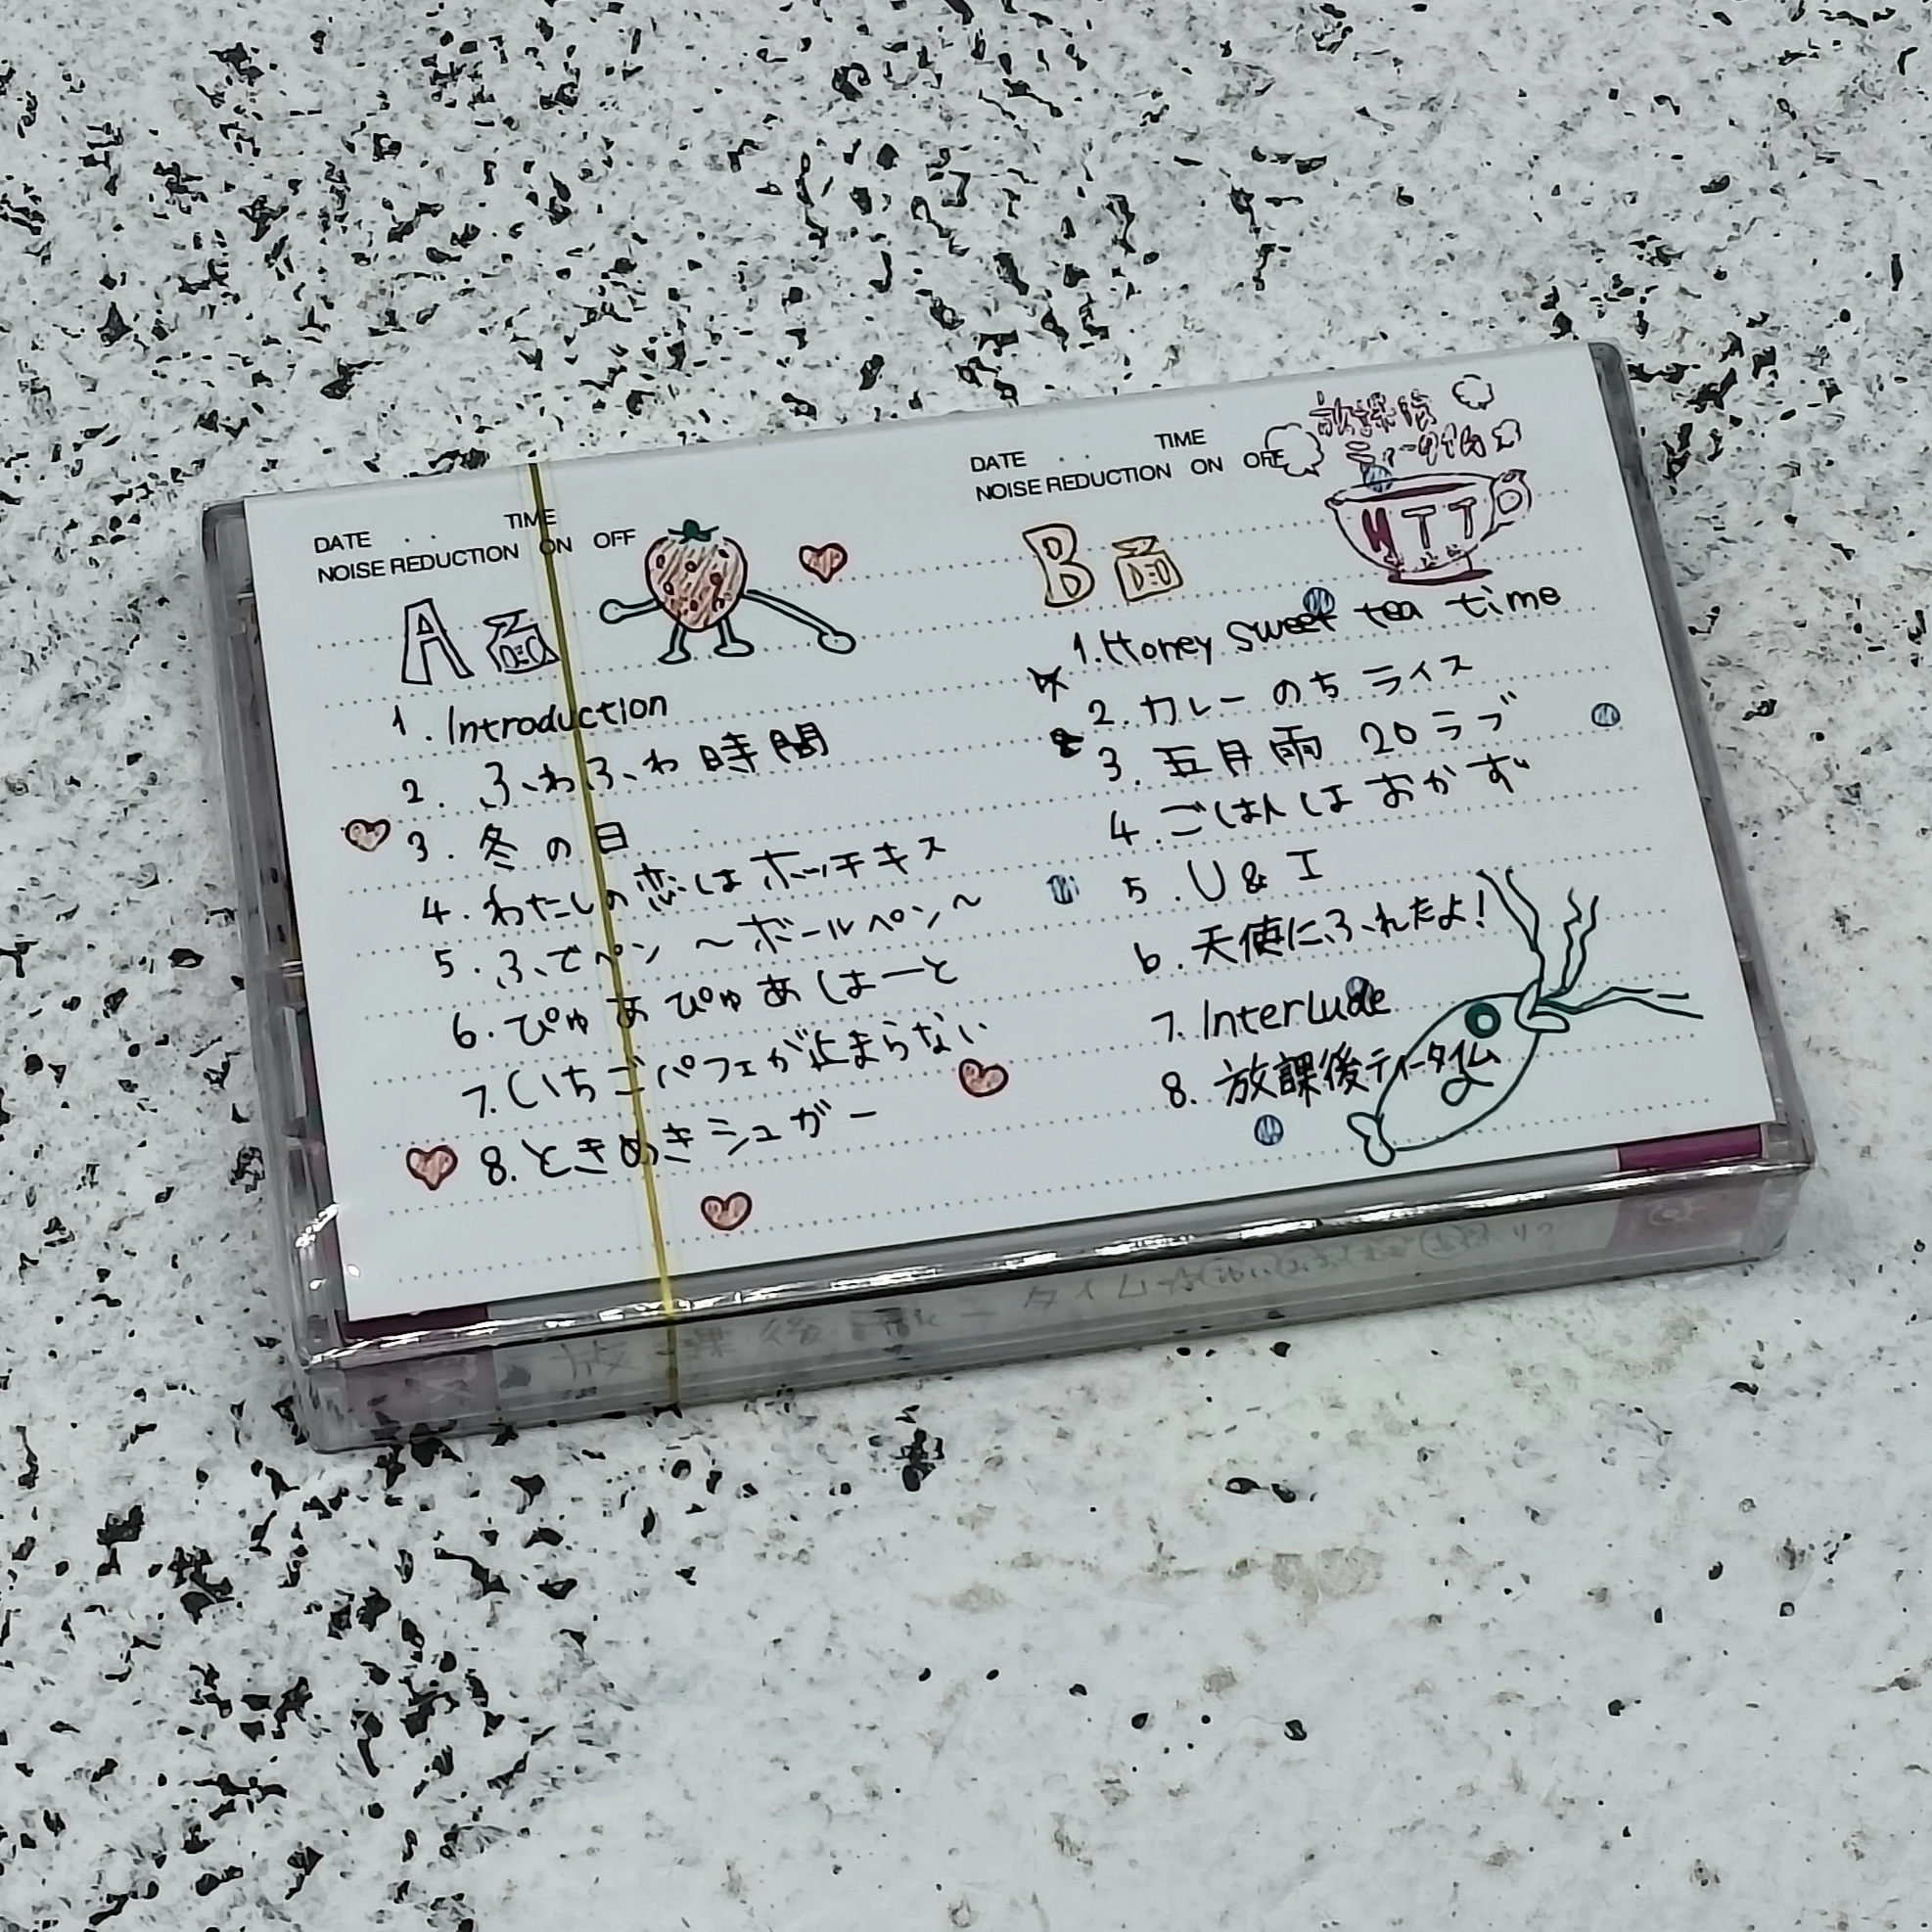 DATE . . TIME
NOISE REDUCTION ON OFF
A面
1. Introduction
2. ふわふわ時間
3. 冬の日
4. わたしの恋はホッチキス
5. ふでペン 〜ボールペン〜
6. ぴゅあぴゅあはーと
7. いちごパフェが止まらない
8. ときめきシュガー
DATE . . TIME
NOISE REDUCTION ON OFF
放課後
ティータイム
HTT
B面
1. Honey sweet tea time
2. カレーのちライス
3. 五月雨 20 ラブ
4. ごはんはおかず
5. U & I
6. 天使にふれたよ!
7. Interlude
8. 放課後ティータイム
放課後ティータイム